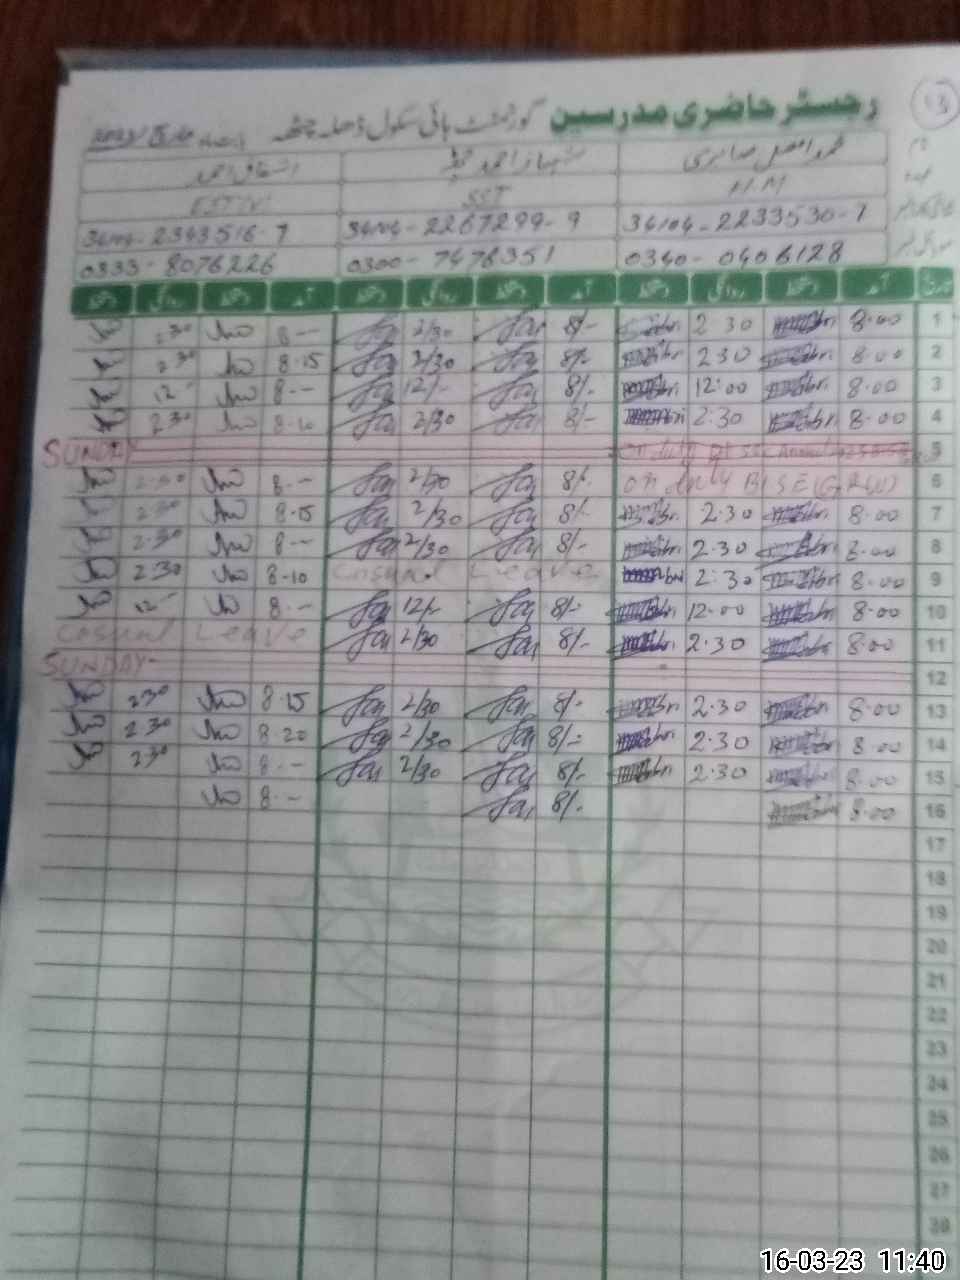 13
رجسٹر حاضری مدرسین گورنمنٹ ہائی سکول ڈھلہ چٹھہ بابت ماہ مارچ
نام محمد افضل صابری شہباز احمد چٹھہ اشتیاق احمد
عہدہ H.M SST EST
34104-2233530-1 34104-2267299-9 34104-2343516-7
0340-0406128 0300-7476351 0333-8076226
تاریخ آمد دستخط روانگی دستخط آمد دستخط روانگی دستخط آمد دستخط روانگی دستخط
1 8.00 2.30 8/- 2/30 8.-- 2.30
2 8.00 2.30 8/- 2/30 8.15 2.30
3 8.00 12:00 8/- 12/- 8.-- 12
4 8.00 2.30 8/- 2/30 8.10 2.30
SUNDAY on duty 5
6 on duty BISE (GRW) 8/- 2/30 8.-- 2.30
7 8.00 2.30 8/- 2/30 8.15 2.30
8 8.00 2.30 8/- 2/30 8.-- 2.30
9 8.00 2:30 Casual Leave 8.10 2.30
10 8.00 12.00 8/- 12/- 8.-- 12
11 8.00 2.30 8/- 2/30 Casual Leave
SUNDAY 12
13 8.00 2.30 8/- 2/30 8.15 2.30
14 8.00 2.30 8/- 2/30 8.20 2.30
15 8.00 2.30 8/- 2/30 8.-- 2.30
16 8.00 8/- 8.--
17
18
19
20
21
22
23
24
25
26
27
28
16-03-23 11:40